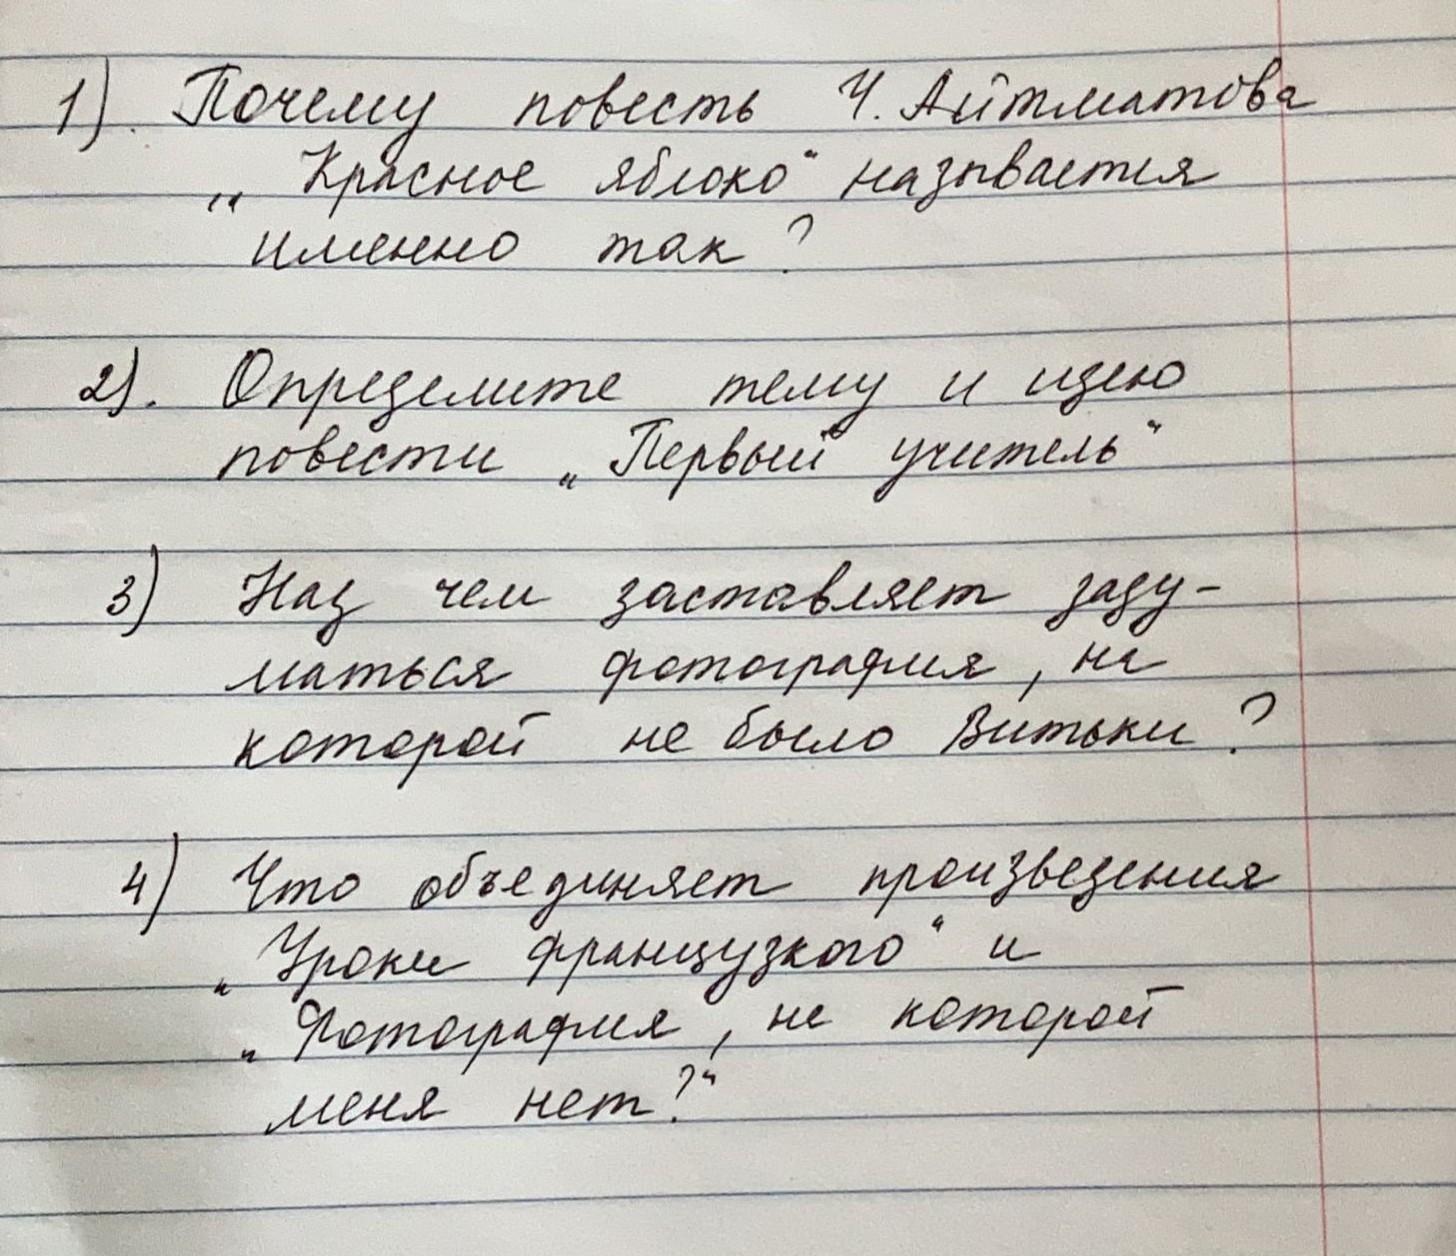 1). Почему повесть Ч. Айтматова
„ Красное яблоко“ называется
именно так?
2). Определите тему и идею
повести „Первый учитель“
3) Над чем заставляет заду-
маться фотография, на
которой не было Витьки?
4) Что объединяет произведения
„Уроки французкого“ и
„Фотография, на которой
меня нет?“